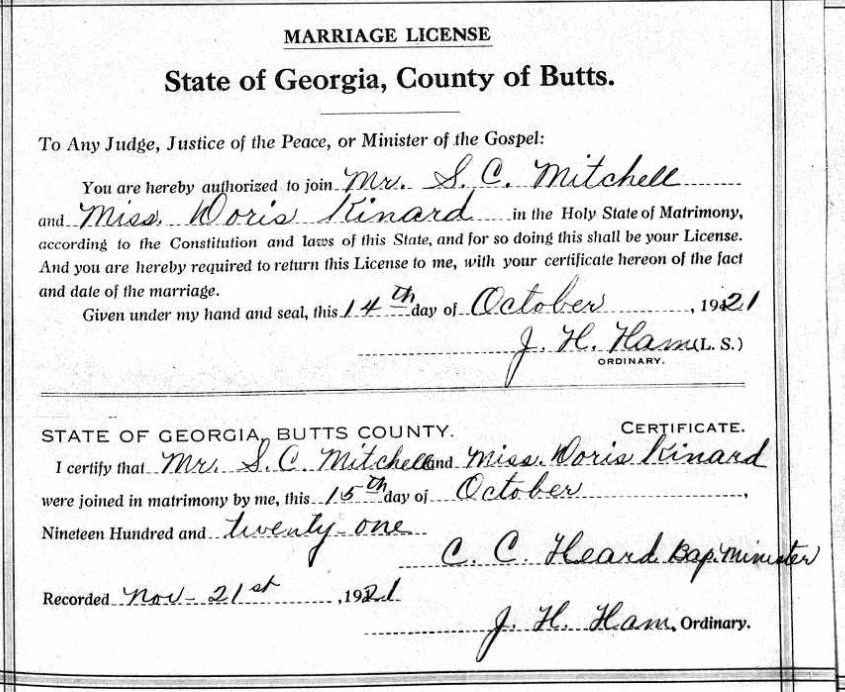 MARRIAGE LICENSE
State of Georgia, County of Butts.
To Any Judge, Justice of the Peace, or Minister of the Gospel:
You are hereby authorized to join Mr. S. C. Mitchell
and Miss. Doris Kinard in the Holy State of Matrimony,
according to the Constitution and laws of this State, and for so doing this shall be your License.
And you are hereby required to return this License to me, with your certificate hereon of the fact
and date of the marriage.
Given under my hand and seal, this 14th day of October, 1921
J. H. Ham (L. S.)
ORDINARY.
STATE OF GEORGIA, BUTTS COUNTY. CERTIFICATE.
I certify that Mr. S. C. Mitchell and Miss. Doris Kinard
were joined in matrimony by me, this 15th day of October,
Nineteen Hundred and twenty-one
C. C. Heard Bap. Minister
Recorded Nov-21st, 1921
J. H. Ham, Ordinary.